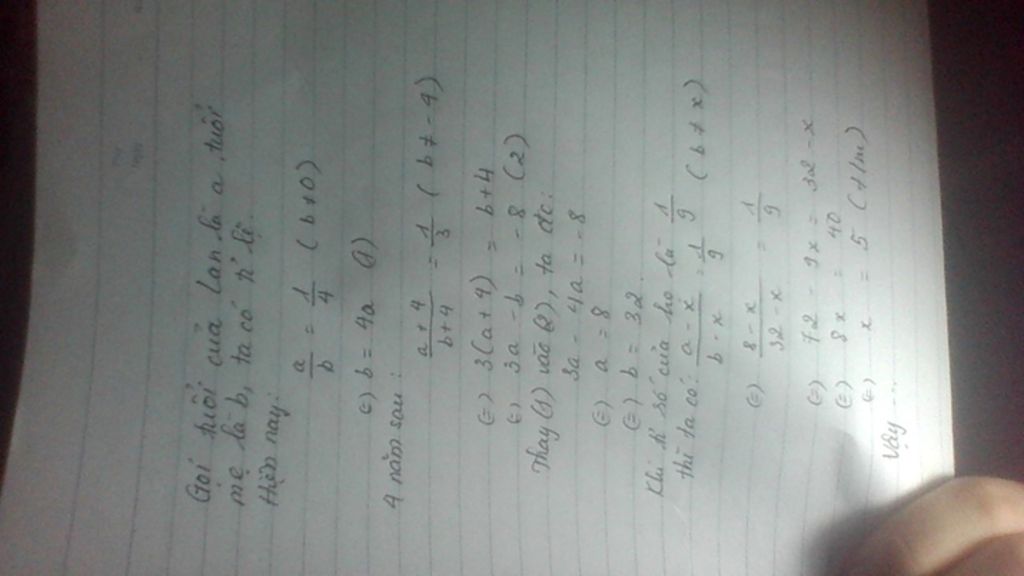 Gọi tuổi của Lan là a, tuổi
mẹ là b, ta có tỉ lệ
Hiện nay:
a/b = 1/4 (b ≠ 0)
(=) b = 4a (1)
4 năm sau:
a + 4 / b + 4 = 1/3 (b ≠ -4)
(=) 3(a + 4) = b + 4
(=) 3a - b = -8 (2)
Thay (1) vào (2), ta đc:
3a - 4a = -8
(=) a = 8
(=) b = 32
Khi tỉ số của họ là 1/9
thì ta có: a - x / b - x = 1/9 (b ≠ x)
(=) 8 - x / 32 - x = 1/9
(=) 72 - 9x = 32 - x
(=) 8x = 40
(=) x = 5 (t/m)
Vậy ...